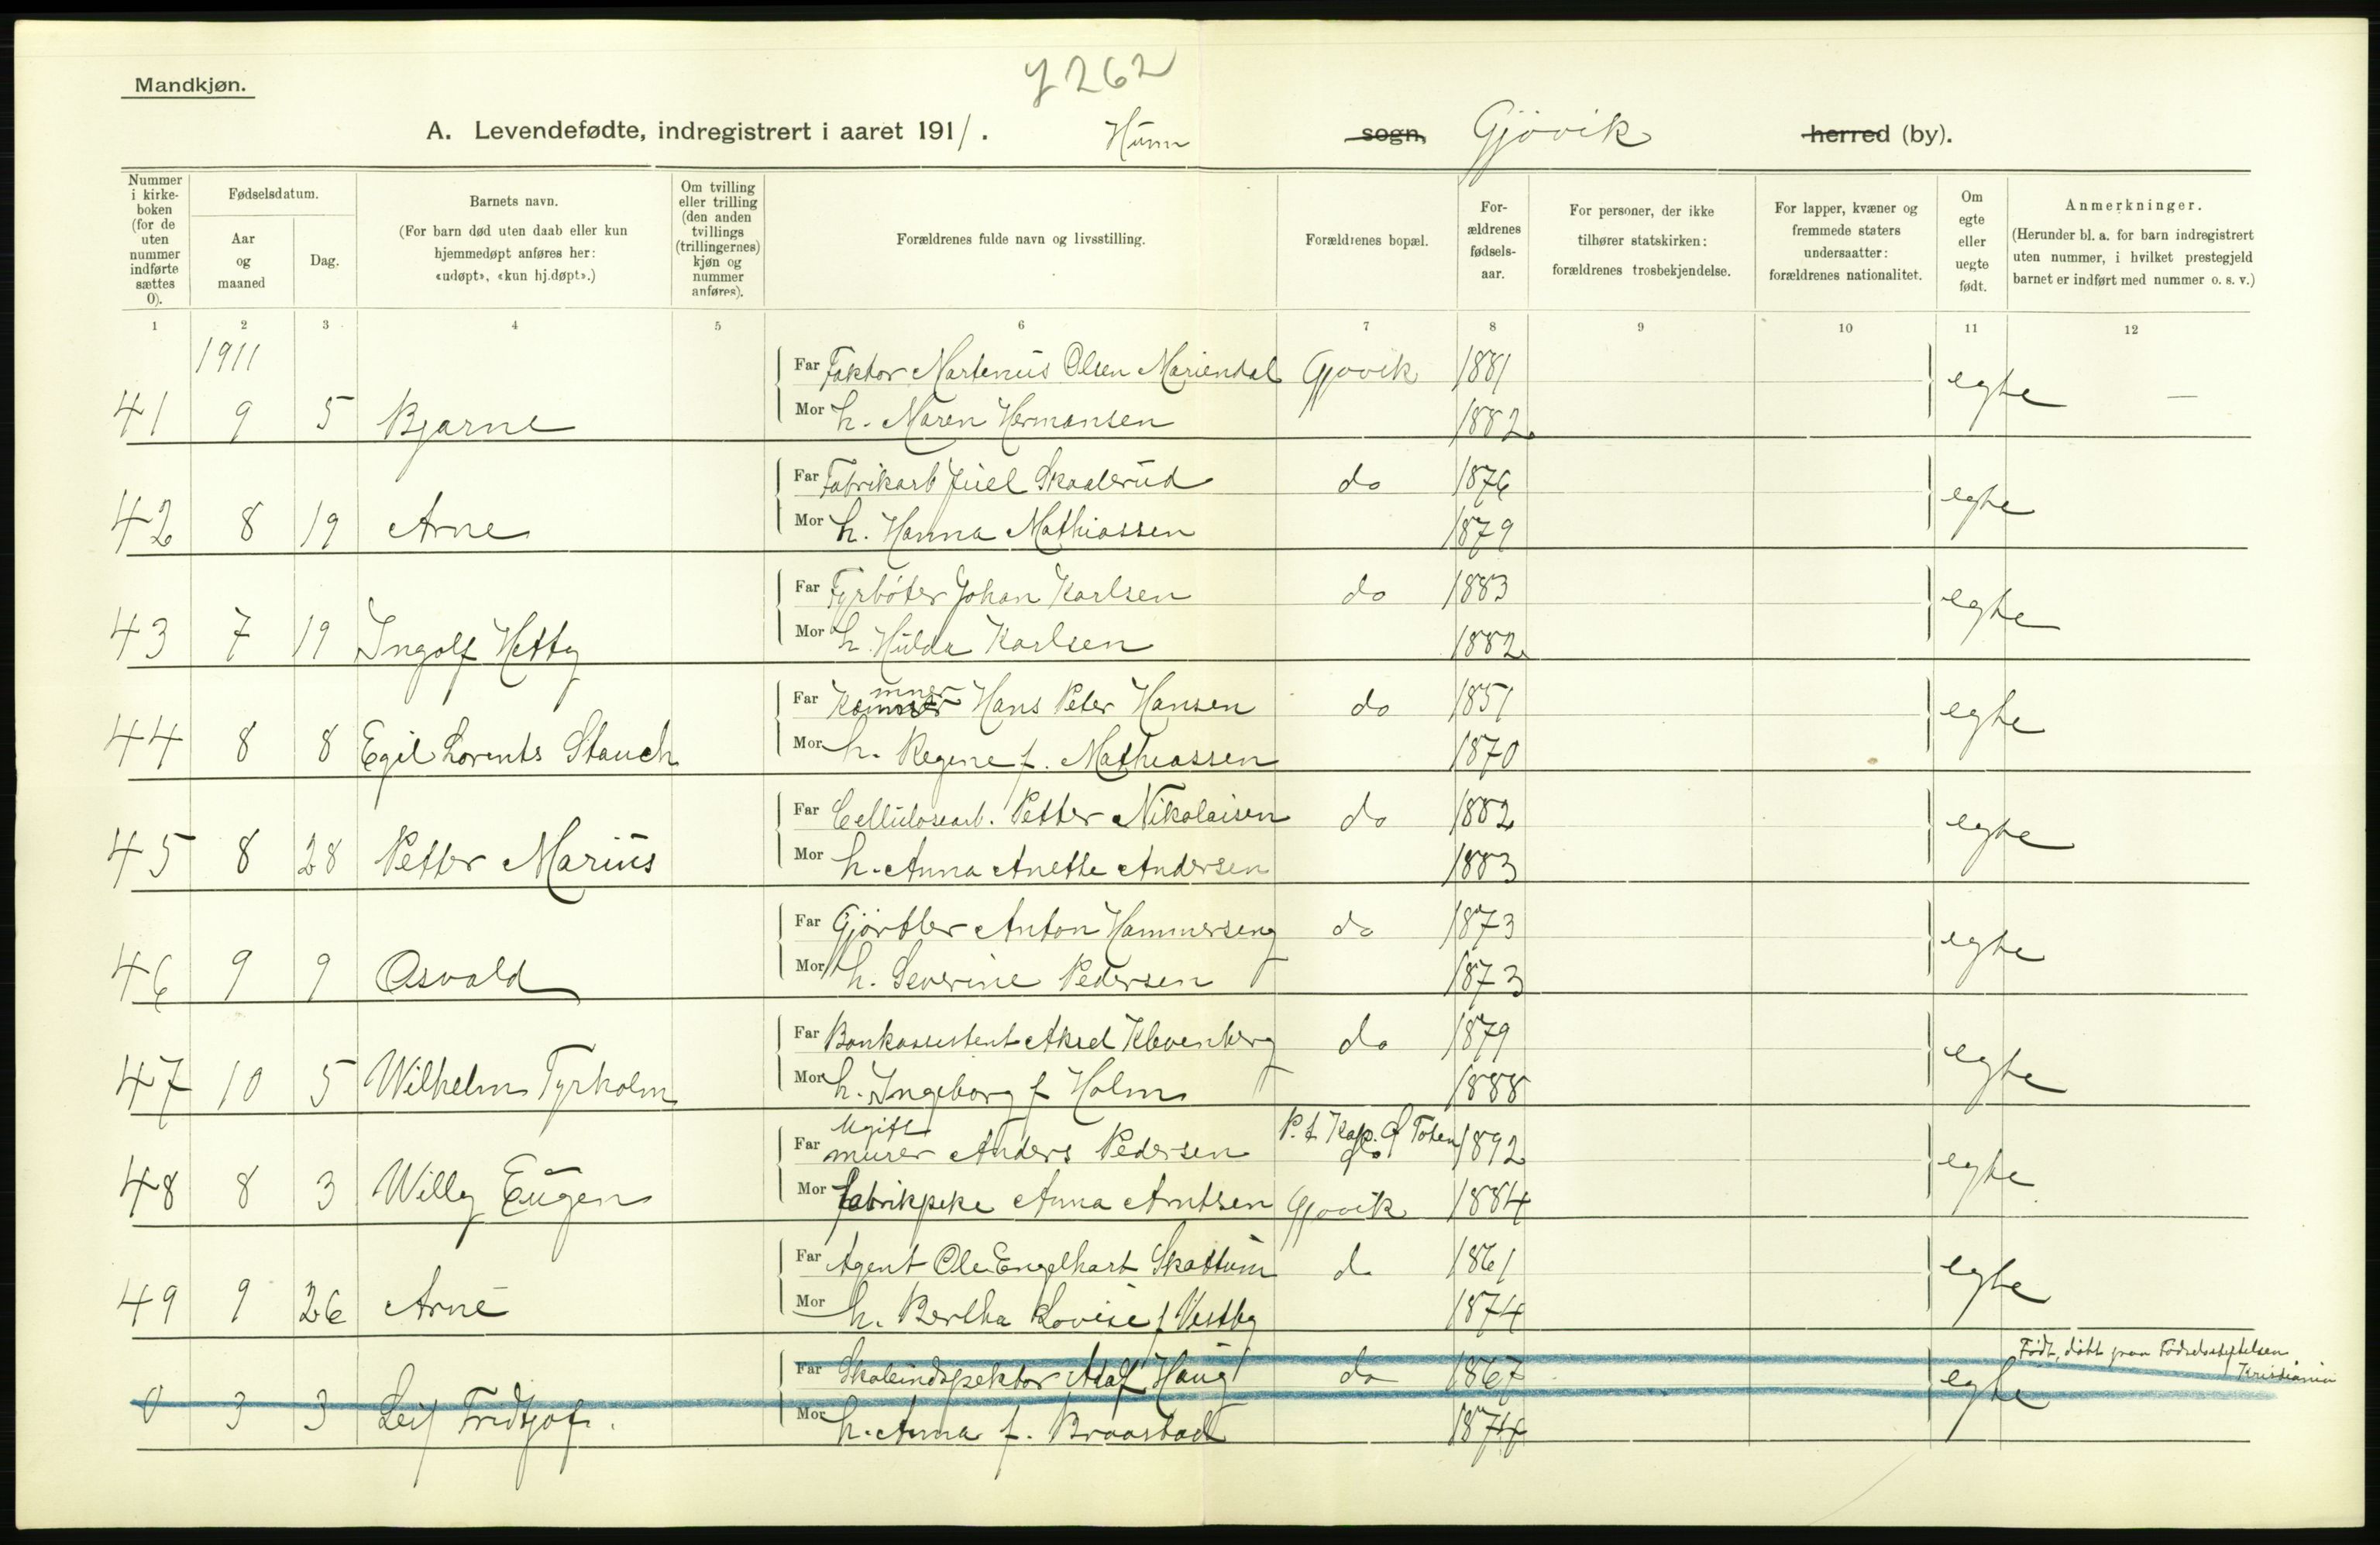 Mandkjøn.
262
A. Levendefødte, indregistrert i aaret 1911. Hunn sogn, Gjövik herred (by).
Nummer i kirke-boken (for de uten nummer indførte sættes 0).
Fødselsdatum.
Aar og maaned
Dag.
Barnets navn.
(For barn død uten daab eller kun hjemmedøpt anføres her: «udøpt», «kun hj.døpt».)
Om tvilling eller trilling (den anden tvillings (trillingernes) kjøn og nummer anføres).
Forældrenes fulde navn og livsstilling.
Forældrenes bopæl.
For-ældrenes fødsels-aar.
For personer, der ikke tilhører statskirken: forældrenes trosbekjendelse.
For lapper, kvæner og fremmede staters undersaatter: forældrenes nationalitet.
Om egte eller uegte født.
Anmerkninger.
(Herunder bl. a. for barn indregistrert uten nummer, i hvilket prestegjeld barnet er indført med nummer o. s. v.)
1 2 3 4 5 6 7 8 9 10 11 12
1911
Far Faktor Martenius Olsen Mariendal Gjøvik 1881
41 9 5 Bjarne Mor h. Maren Hermansen 1882 egte –
Far Fabrikarb Juel Skaalerud do 1876
42 8 19 Arne Mor h. Hanna Mathiassen 1879 egte
Far Fyrböter Johan Karlsen do 1883
43 7 19 Ingolf Hetty Mor h. Hulda Karlsen 1882 egte
Far Hans Peter Hansen do 1851
44 8 8 Egil Lorents Stauch Mor h. Regine f. Mathiassen 1870 egte
Far Cellulosearb. Petter Nikolaisen do 1882
45 8 28 Petter Marius Mor h. Anna Anette Andersen 1883 egte
Far Gjörtler Anton Hammerseng do 1873
46 9 9 Osvald Mor h. Severine Pedersen 1873 egte
Far Bankassistent Aksel Klevenberg do 1879
47 10 5 Wilhelm Tyrholm Mor h. Ingeborg f Holm 1888 egte
Ugift P. t. Kap. Ø Toten
Far murer Anders Pedersen 1892
48 8 3 Willy Eugen Mor fabrikpike Anna Arntsen Gjøvik 1884 egte
Far Agent Ole Engelhart Skattum do 1861
49 9 26 Arne Mor h. Bertha Lovise f Vestby 1874 egte
Født, døbt paa Fødselsstiftelsen Kristiania
Far Skoleindspektor Adolf Haug do 1867
0 3 3 Leif Fridtjof. Mor h. Anna f. Braastad 1874 egte